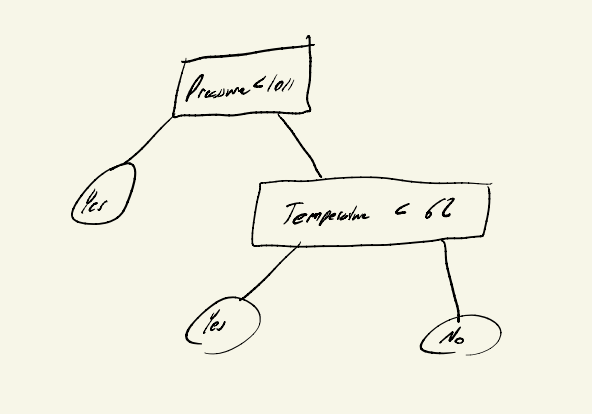 Pressure < 1011
Yes
Temperature < 62
Yes
No